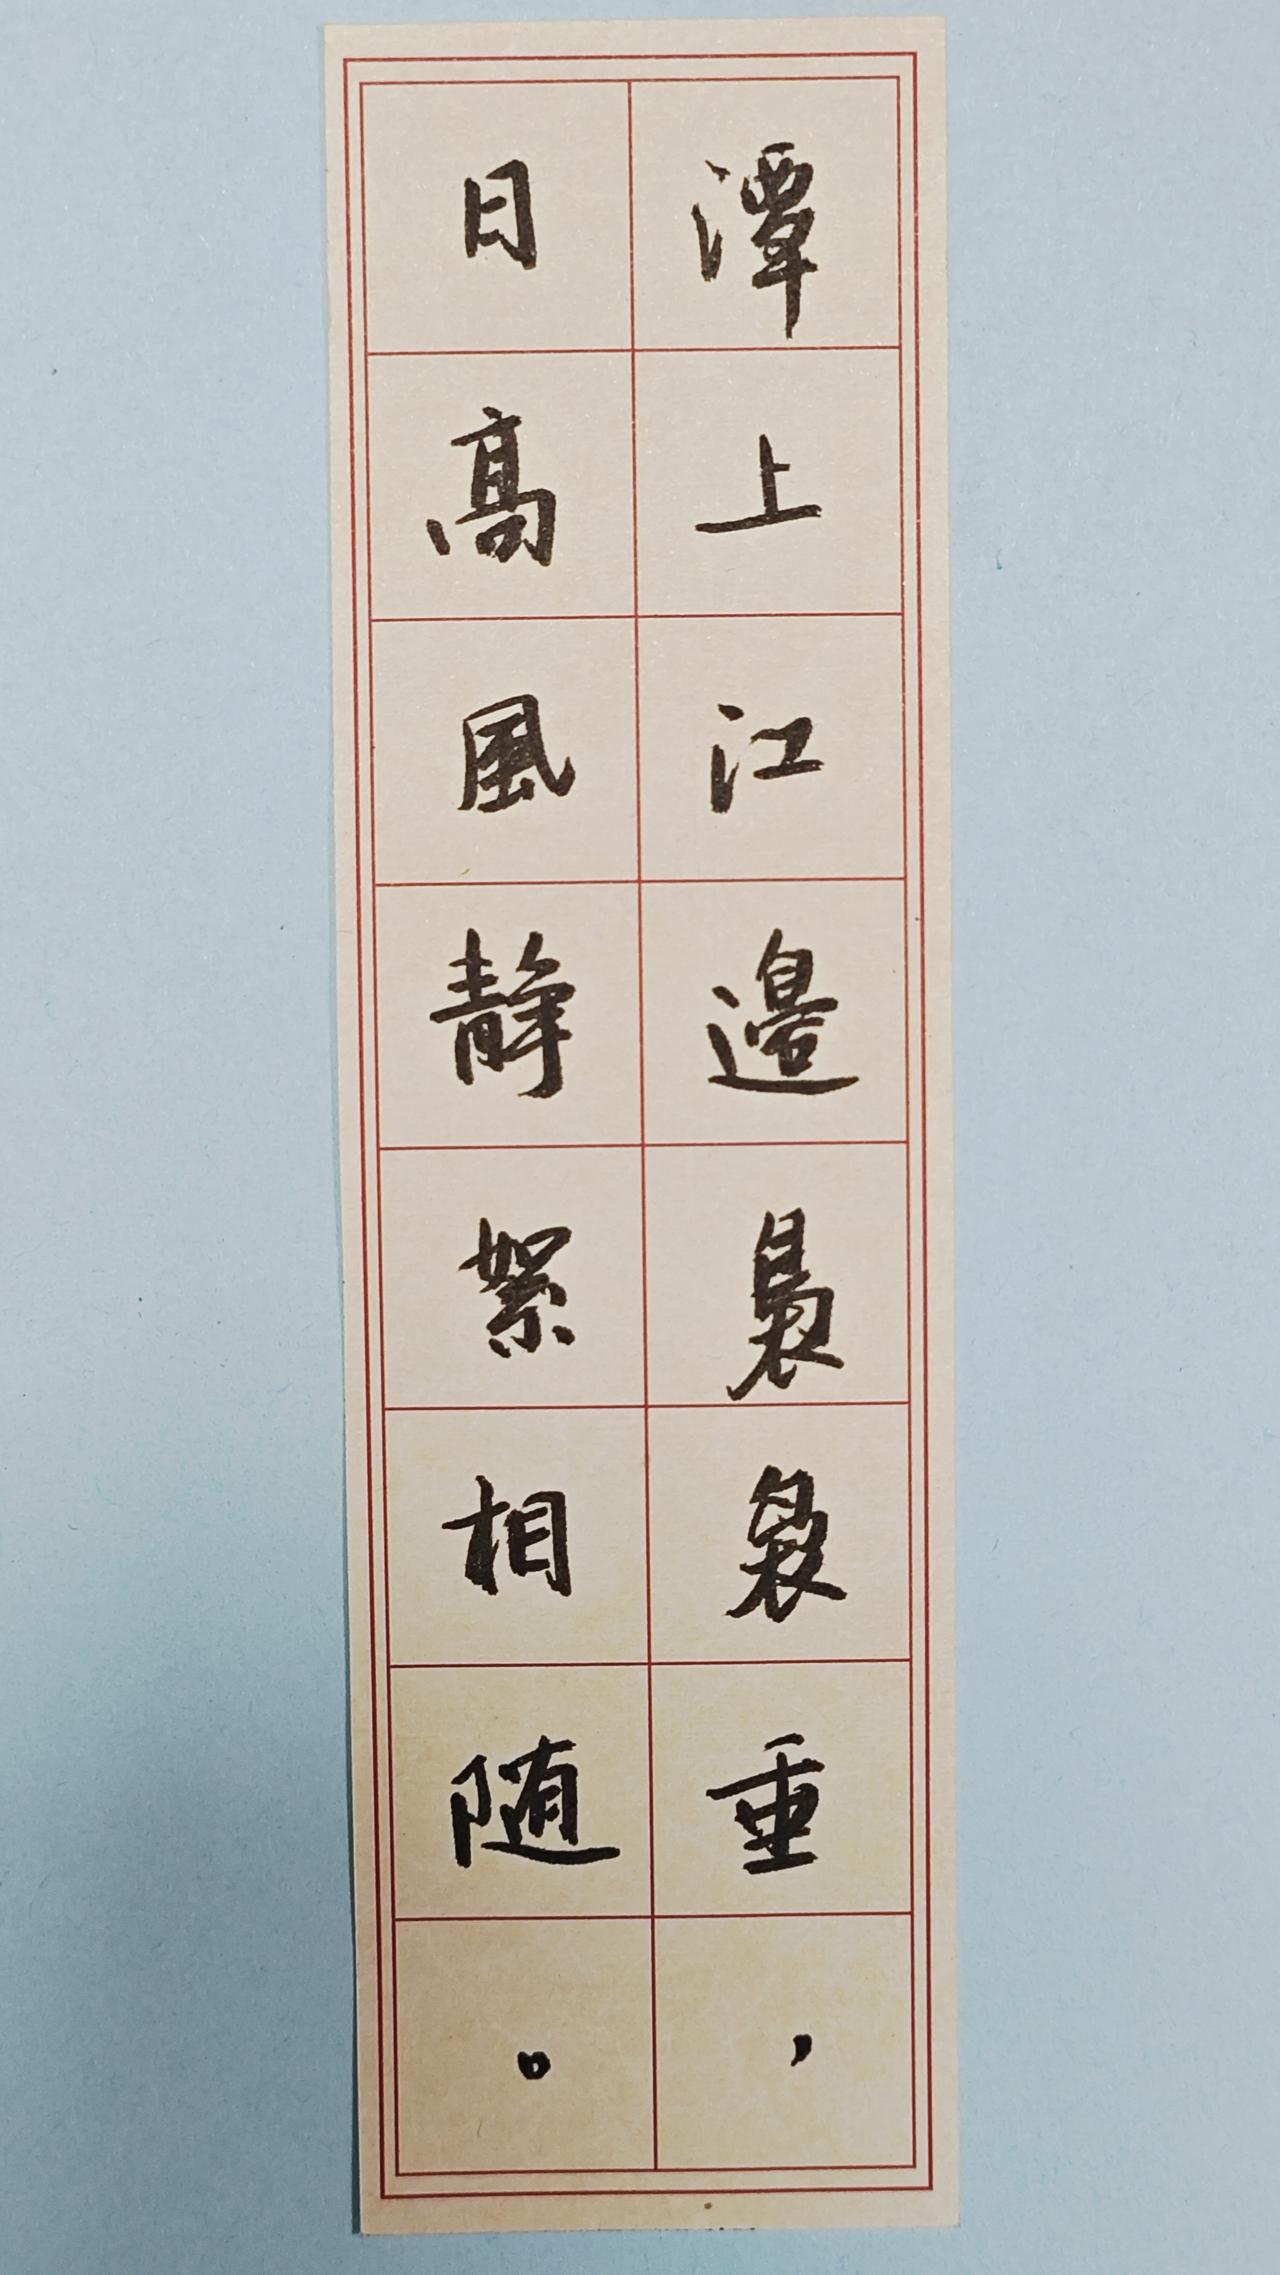 潭上江邊裊裊垂，
日高風靜絮相随。